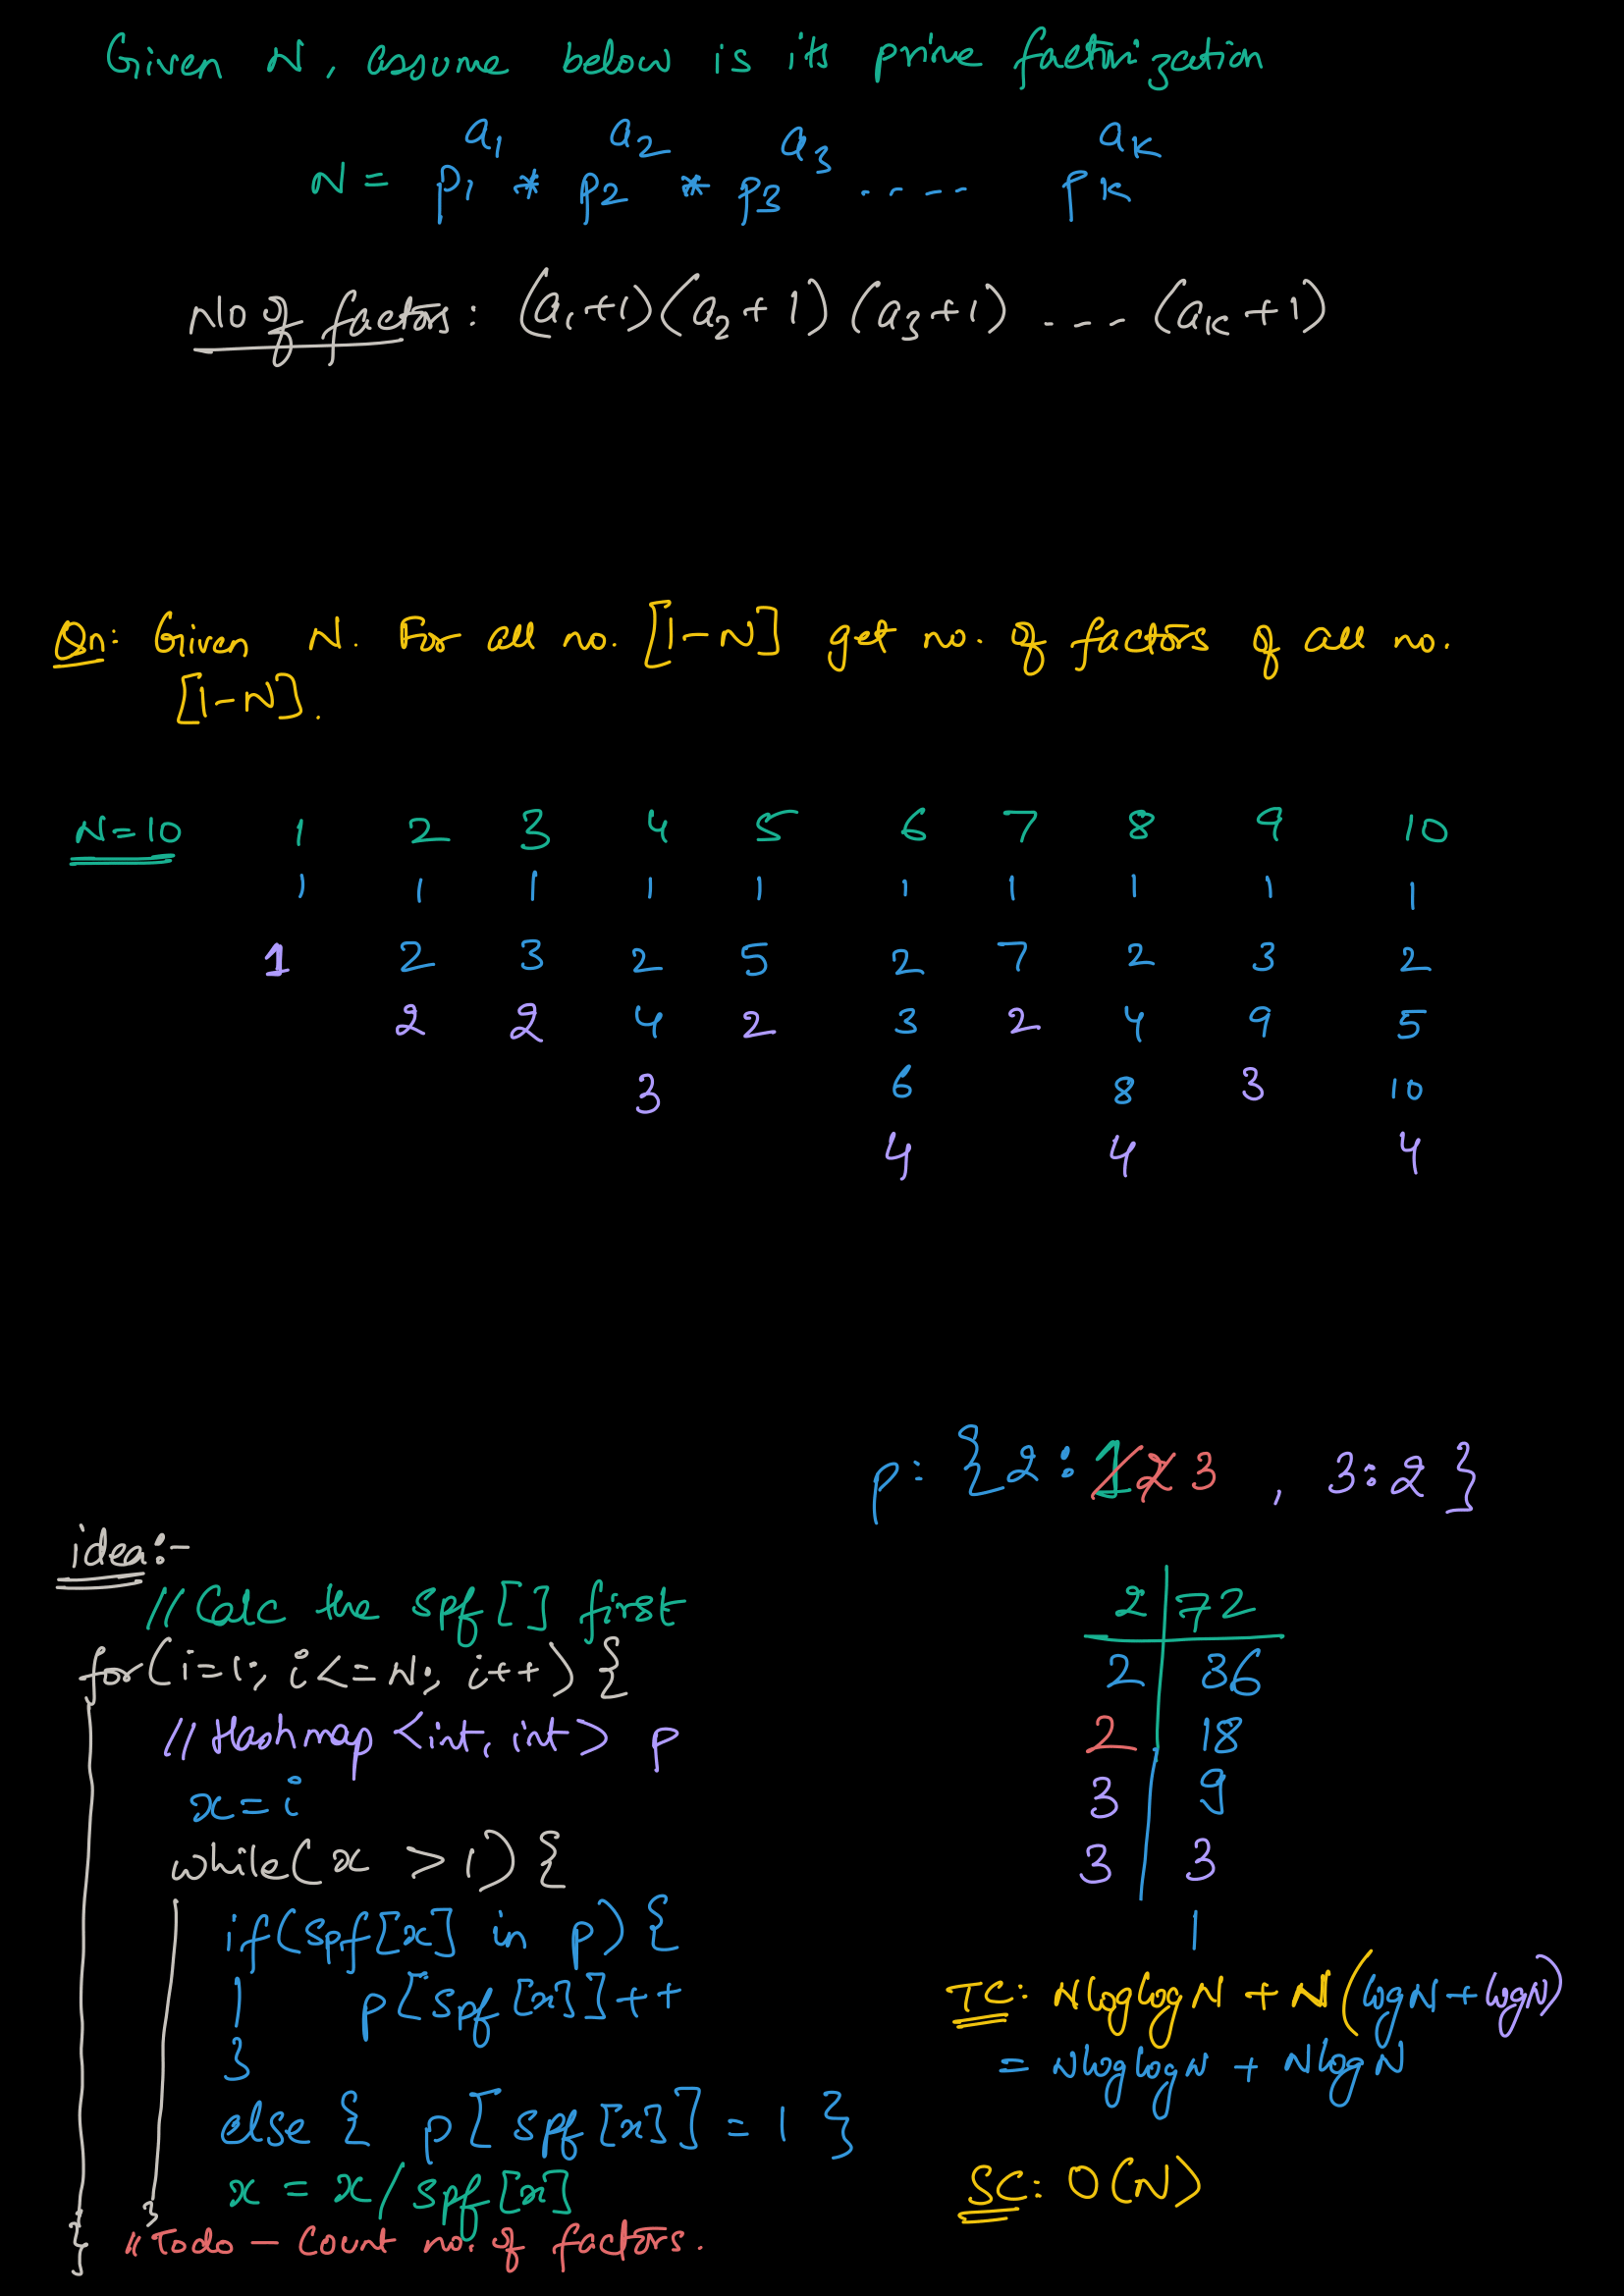 Given N, assume below is its prime factorization
N = p1^a1 * p2^a2 * p3^a3 ..... pK^aK
No of factors: (a1+1)(a2+1)(a3+1) .... (aK+1)
Qn: Given N. For all no. [1-N] get no. of factors of all no.
[1-N].
N=10 1 2 3 4 5 6 7 8 9 10
1 1 1 1 1 1 1 1 1 1
1 2 3 2 5 2 7 2 3 2
2 2 4 2 3 2 4 9 5
3 6 8 3 10
4 4 4
p: {2: 1 2 3 , 3:2}
idea:-
// Calc the spf[] first
for(i=1; i<=N; i++) {
// Hashmap <int, int> p
x=i
while(x > 1) {
if(spf[x] in p) {
p[spf[x]]++
}
else { p[spf[x]] = 1 }
x = x/spf[x]
}
} // Todo - Count no. of factors.
2 | 72
2 | 36
2 | 18
3 | 9
3 | 3
1
TC: NloglogN + N(logN+logN)
= NloglogN + NlogN
SC: O(N)